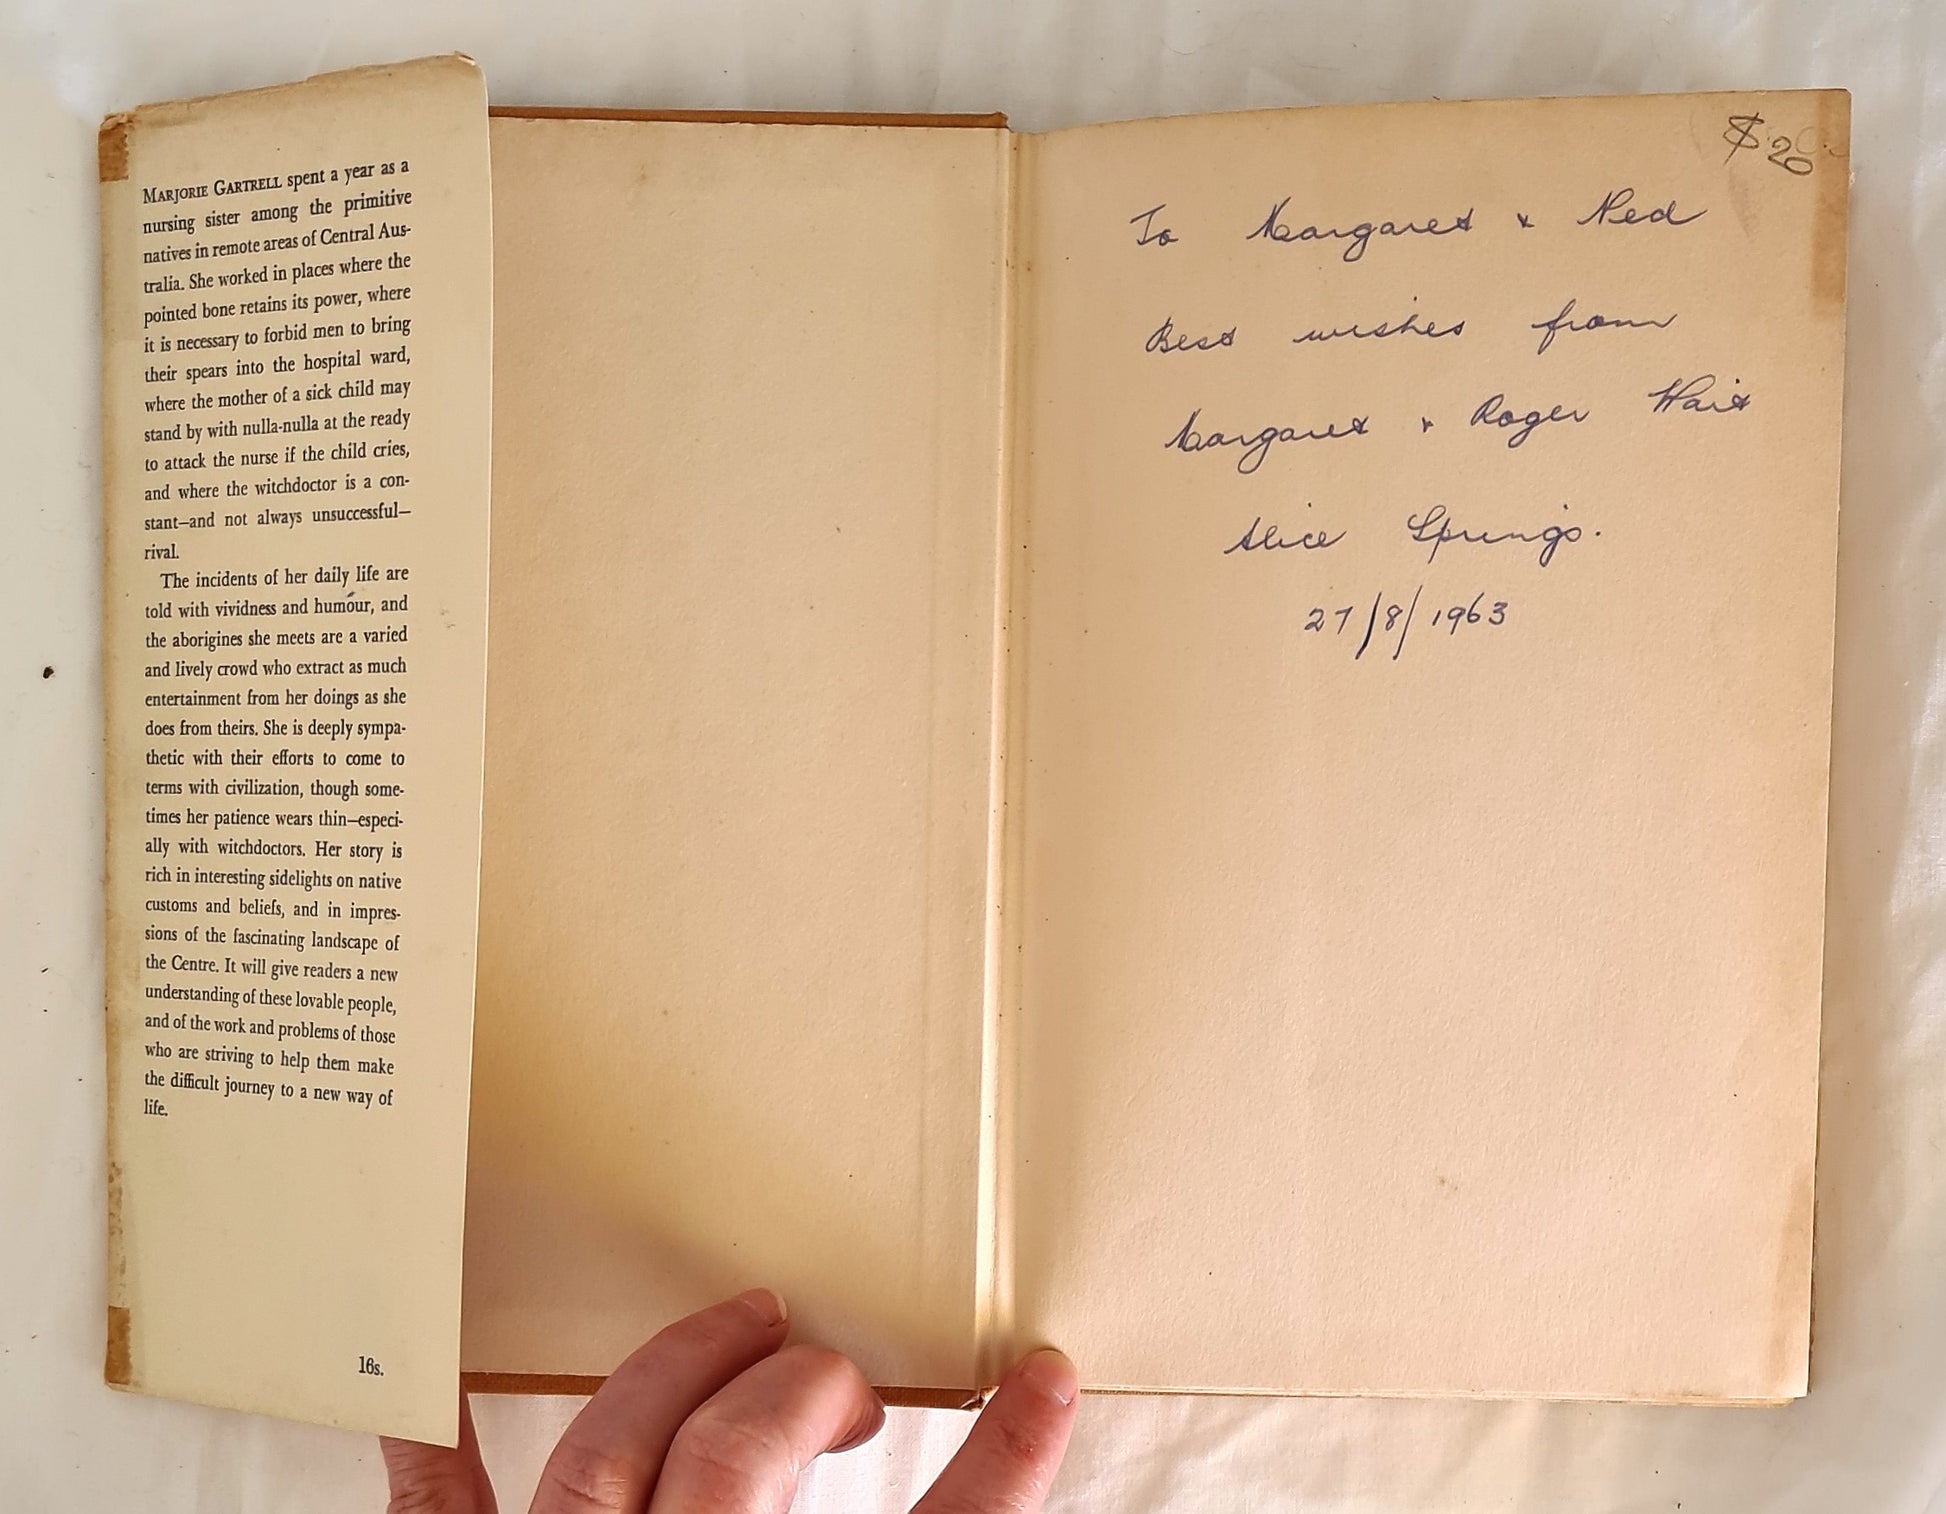 MARJORIE GARTRELL spent a year as a
nursing sister among the primitive
natives in remote areas of Central Aus-
tralia. She worked in places where the
pointed bone retains its power, where
it is necessary to forbid men to bring
their spears into the hospital ward,
where the mother of a sick child may
stand by with nulla-nulla at the ready
to attack the nurse if the child cries,
and where the witchdoctor is a con-
stant—and not always unsuccessful—
rival.
The incidents of her daily life are
told with vividness and humour, and
the aborigines she meets are a varied
and lively crowd who extract as much
entertainment from her doings as she
does from theirs. She is deeply sympa-
thetic with their efforts to come to
terms with civilization, though some-
times her patience wears thin—especi-
ally with witchdoctors. Her story is
rich in interesting sidelights on native
customs and beliefs, and in impres-
sions of the fascinating landscape of
the Centre. It will give readers a new
understanding of these lovable people,
and of the work and problems of those
who are striving to help them make
the difficult journey to a new way of
life.
16s.
$20
To Margaret & Ned
Best wishes from
Margaret & Roger Wait
Alice Springs.
27/8/1963